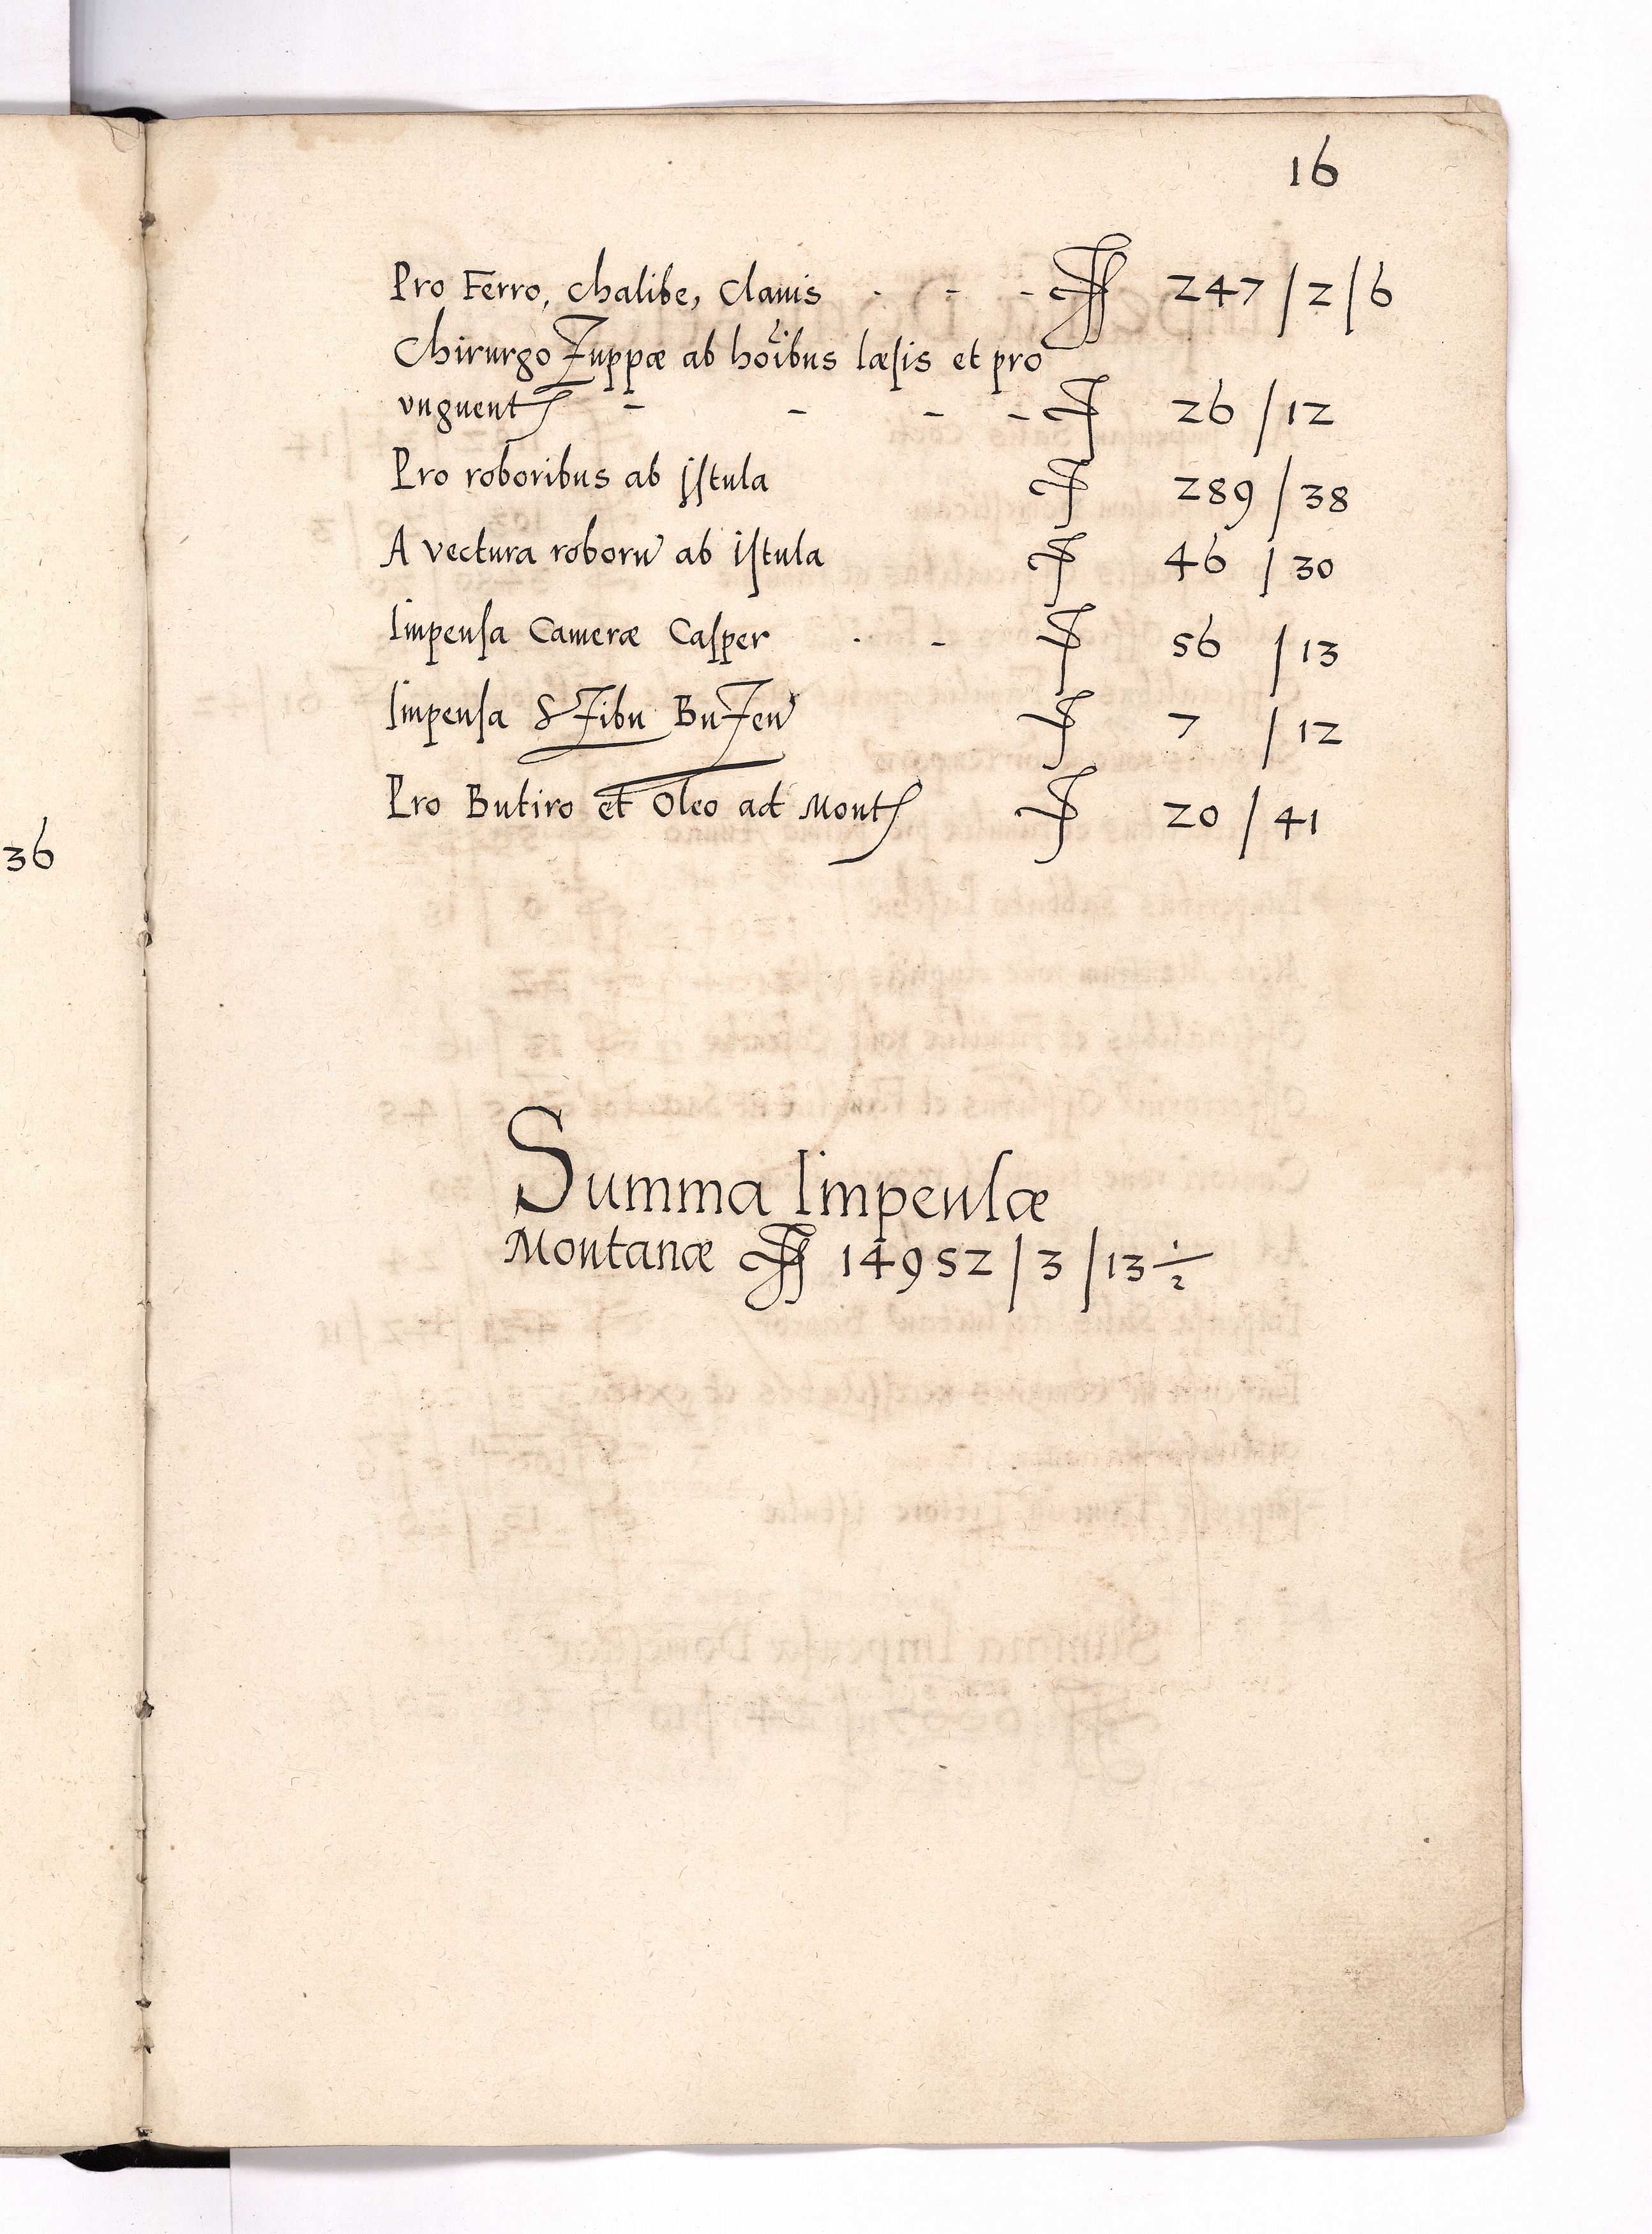 16
Pro Ferro, chalibe, clauis - - - ff 247 / 2 / 6
Chirurgo Zuppæ ab hoĩbus læsis et pro
vnguent - - - - f 26 / 12
Pro roboribus ab Istula f 289 / 38
A vectura roborũ ab istula f 46 / 30
Impensa Cameræ Casper - - f 56 / 13
Impensa f 7 / 12
Pro Butiro et Oleo ad Mont f 20 / 41
36
Summa Impensæ
Montanæ ff 14952 / 3 / 13 1/2